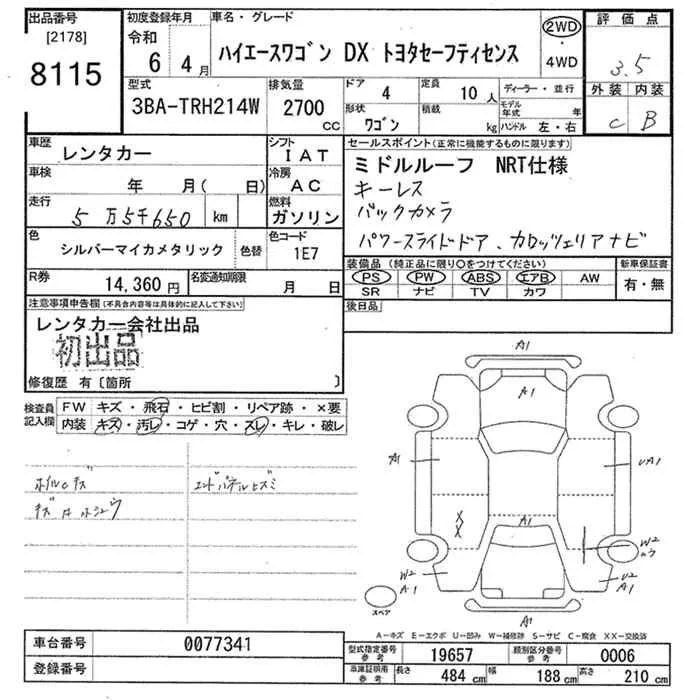 出品番号
[2178]
8115
初度登録年月
令和
6年4月
車名・グレード
ハイエースワゴン DX トヨタセーフティセンス
2WD
・
4WD
評価点
3.5
外装 内装
C B
型式
3BA-TRH214W
排気量
2700
CC
ドア 4
形状 ワゴン
定員 10 人
積載 kg
ディーラー・並行
モデル年式 年
ハンドル 左・右
車歴 レンタカー
シフト IAT
車検 年 月( 日)
冷房 AC
走行 5万5千650 km
燃料 ガソリン
色 シルバーマイカメタリック 色替
色コード 1E7
R券 14,360円
名変通知期限 月 日
セールスポイント(正常に機能するものに限ります)
ミドルルーフ NRT仕様
キーレス
バックカメラ
パワースライドドア、カロッツェリアナビ
装備品(純正品に限り○をつけてください)
PS PW ABS エアB AW
SR ナビ TV カワ
新車保証書
有・無
後日品
注意事項申告欄(不具合内容等は具体的に記入して下さい)
レンタカー会社出品
初出品
修復歴 有〔箇所 〕
検査員記入欄
FW キズ・飛石・ヒビ割・リペア跡・×要
内装 キズ・汚レ・コゲ・穴・スレ・キレ・破レ
ホイルCキズ
エンドパネルヒズミ
A1
A1
A1
UA1
A1
XX
W2
W2
A1
U2
A1
A1
スペア
A-キズ E-エクボ U-凹み W-補修跡 S-サビ C-腐食 XX-交換済
車台番号 0077341
登録番号
型式指定番号 参考 19657
類別区分番号 参考 0006
車庫証明用 参考 長さ 484 cm 幅 188 cm 高さ 210 cm